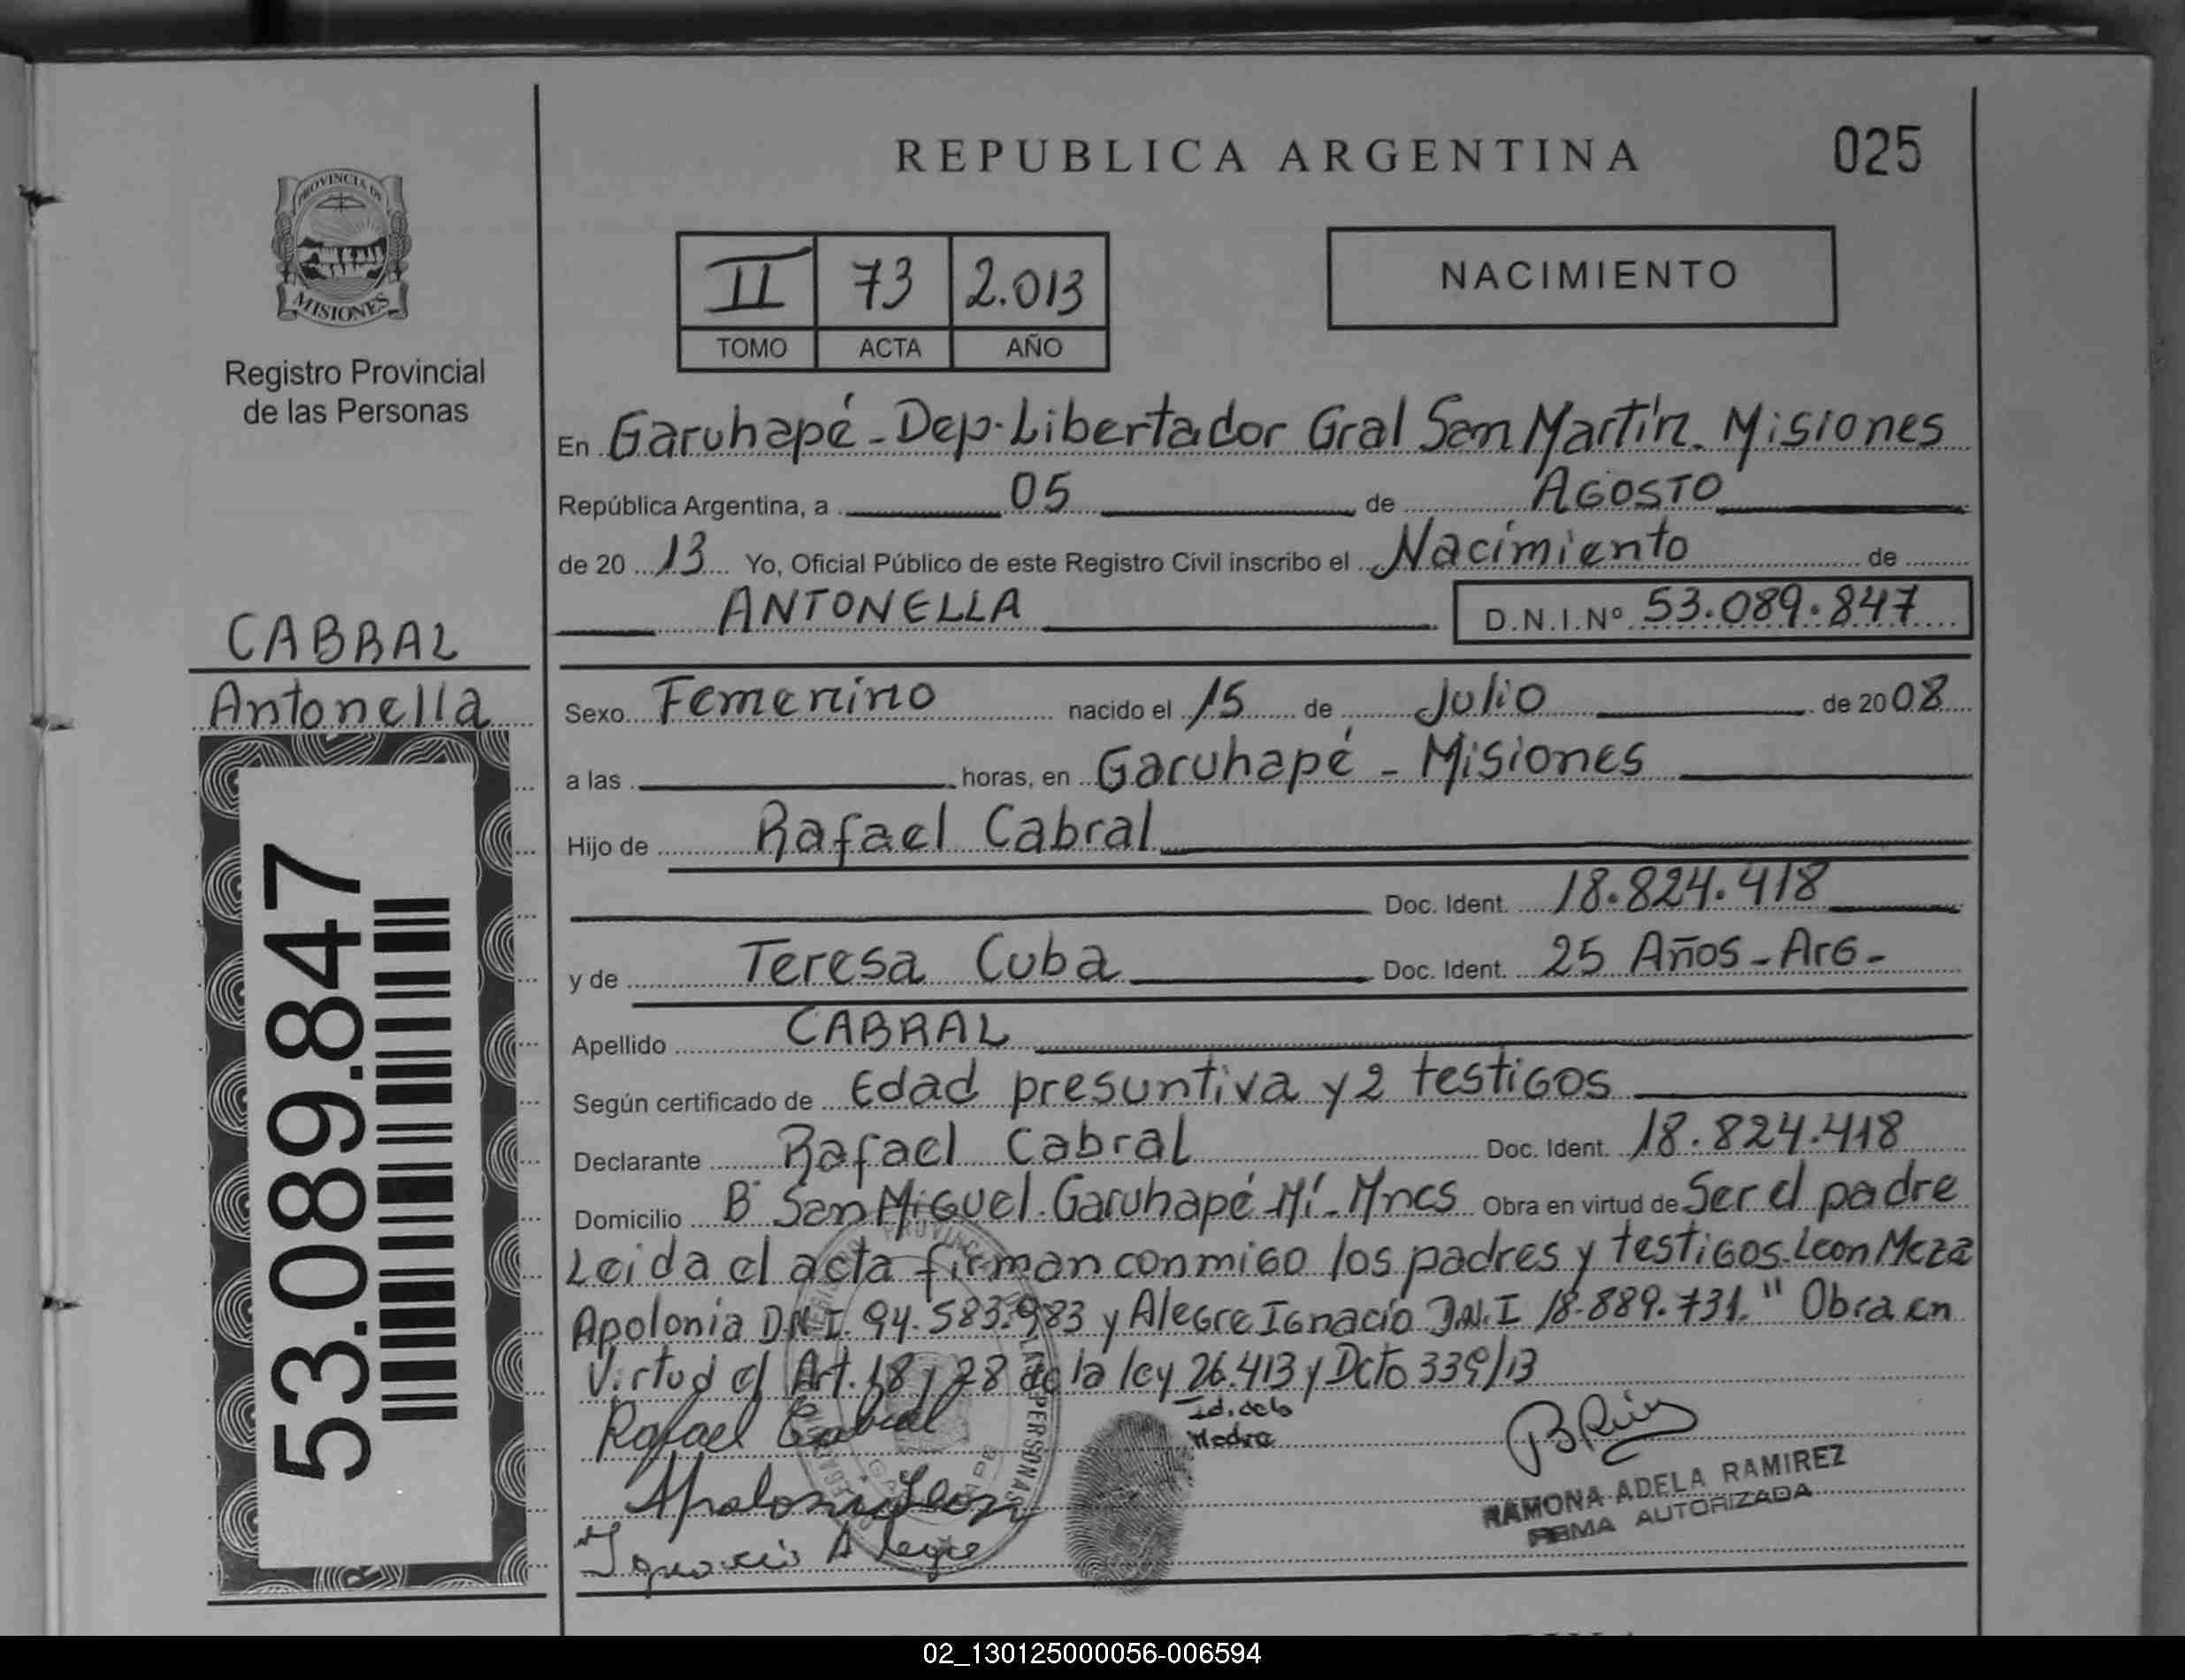 REPUBLICA ARGENTINA
025
PROVINCIA DE
MISIONES
Registro Provincial
de las Personas
II 73 2.013
TOMO ACTA AÑO
NACIMIENTO
En Garuhapé - Dep. Libertador Gral San Martín. Misiones
República Argentina, a 05 de AGOSTO
de 20 13 Yo, Oficial Público de este Registro Civil inscribo el Nacimiento de
ANTONELLA D.N.I.Nº 53.089.847
CABRAL
Antonella
53.089.847
Sexo Femenino nacido el 15 de Julio de 2008
a las horas, en Garuhapé - Misiones
Hijo de Rafael Cabral
Doc. Ident. 18.824.418
y de Teresa Cuba Doc. Ident. 25 Años - Arg -
Apellido CABRAL
Según certificado de Edad presuntiva y 2 testigos
Declarante Rafael Cabral Doc. Ident. 18.824.418
Domicilio B° San Miguel. Garuhapé Mí. Mnes Obra en virtud de Ser el padre
Leida el acta firman conmigo los padres y testigos. Leon Meza
Apolonia D.N.I. 94.583.983 y Alegre Ignacio D.N.I 18.889.731. " Obra en
Virtud Art. 18 y 28 de la ley 26.413 y Dcto 339/13
Rafael Cabral
Id. de la
Madre
Apolonia Leon
Ignacio Alegre
RAMONA ADELA RAMIREZ
FIRMA AUTORIZADA
02_130125000056-006594